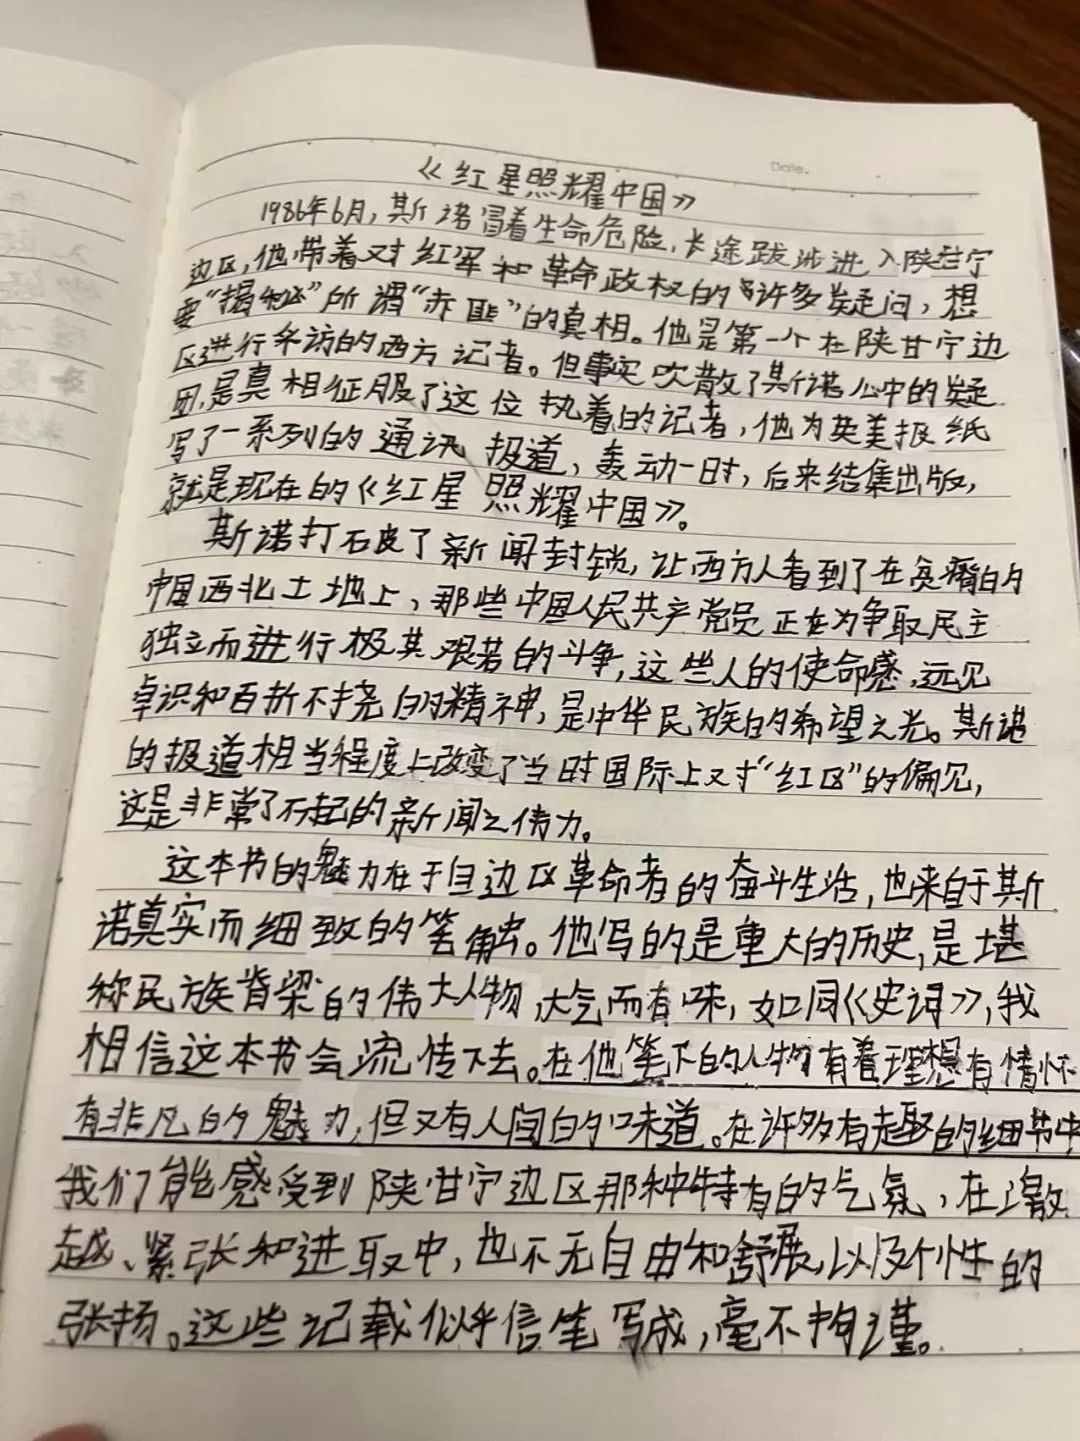 Date.
《红星照耀中国》
1986年6月,斯诺冒着生命危险,长途跋涉进入陕甘宁
边区,他带着对红军和革命政权的许多疑问,想
要“揭秘”所谓“赤匪”的真相。他是第一个在陕甘宁边
区进行采访的西方记者。但事实吹散了斯诺心中的疑
团,是真相征服了这位执着的记者,他为英美报纸
写了一系列的通讯报道,轰动一时,后来结集出版,
就是现在的《红星照耀中国》。
斯诺打破了新闻封锁,让西方人看到了在贫瘠的
中国西北土地上,那些中国人民共产党员正在为争取民主
独立而进行极其艰苦的斗争,这些人的使命感,远见
卓识和百折不挠的精神,是中华民族的希望之光。斯诺
的报道相当程度上改变了当时国际上对“红区”的偏见,
这是非常了不起的新闻之伟力。
这本书的魅力在于自边区革命者的奋斗生活,也来自于斯
诺真实而细致的笔触。他写的是重大的历史,是堪
称民族脊梁的伟大人物,大气而有味,如同《史诗》,我
相信这本书会流传下去。在他笔下的人物有着理想有情怀
有非凡的魅力,但又有人间的味道。在许多有趣的细节中
我们能感受到陕甘宁边区那种特有的气氛,在激
越、紧张和进取中,也不无自由和舒展,以及个性的
张扬。这些记载似乎信笔写成,毫不拘谨。